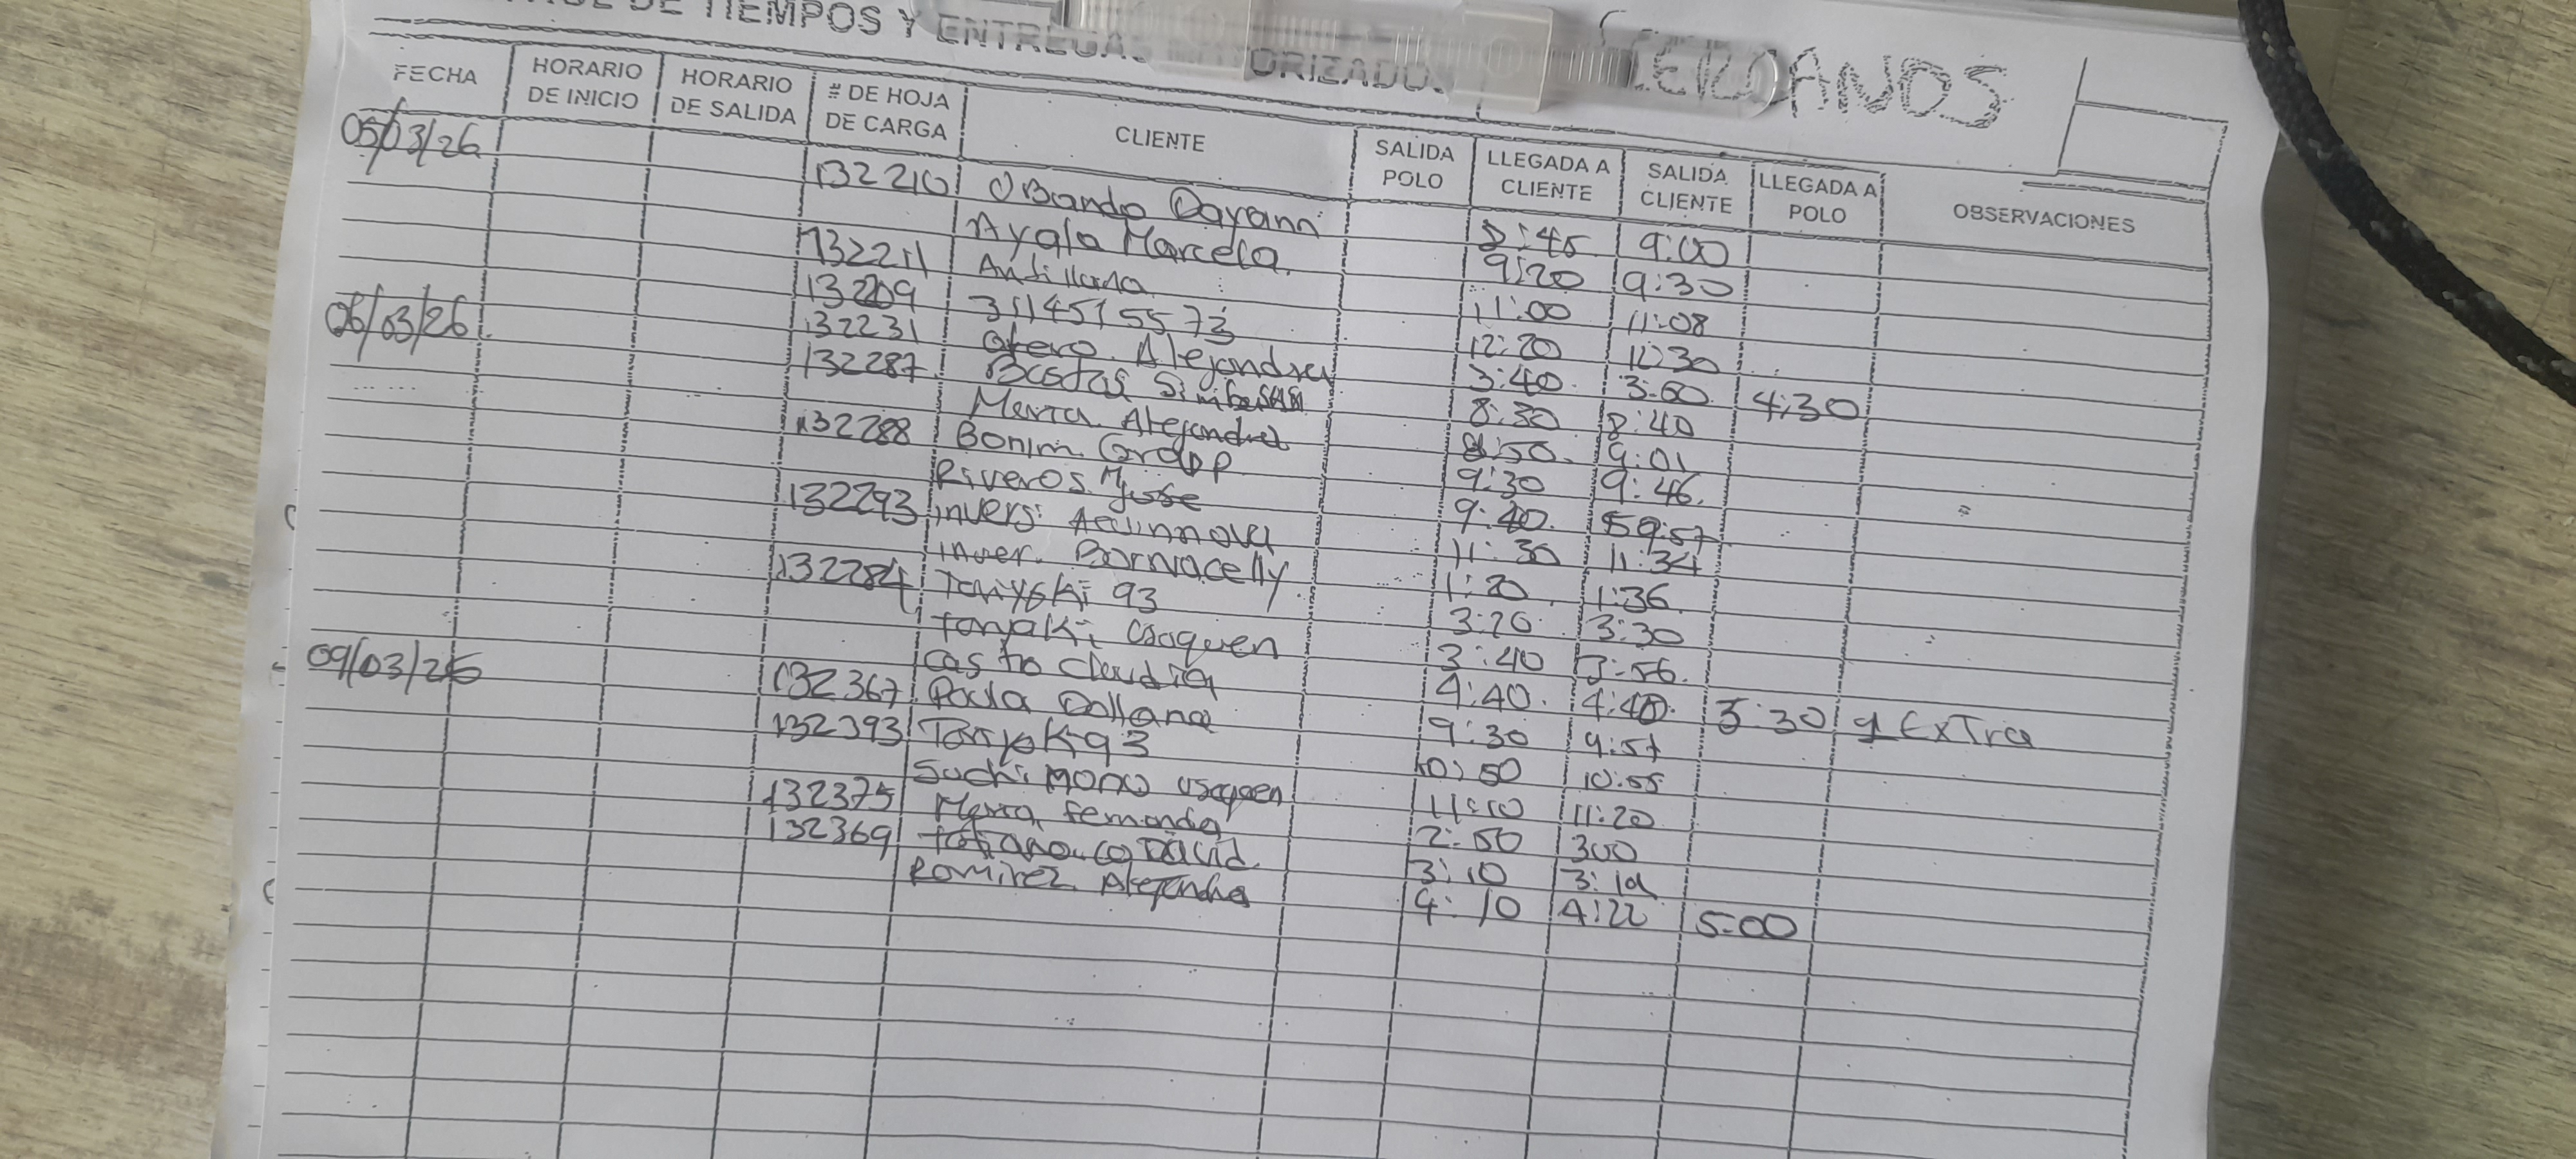 DE TIEMPOS Y ENTREGAS
FECHA HORARIO DE INICIO HORARIO DE SALIDA # DE HOJA DE CARGA CLIENTE SALIDA POLO LLEGADA A CLIENTE SALIDA CLIENTE LLEGADA A POLO OBSERVACIONES
05/03/26 132210 Obando Dayann 8:45 9:00
Ayala Marcela. 9:20 9:30
132211 Antillana 11:00 11:08
132209 3114515573 12:20 12:30
132231 Otero. Alejandra 3:40. 3:50. 4:30
06/03/26 132287. Bodas 8:30 8:40
Merra. Alejandra 8:50. 9:01
132288 Bonim. Group 9:30 9:46.
Riveros. M Jose 9:40. 9:57
132293 invers. 11:30 11:34
inver. 1:20 1:36.
132284 93 3:20 3:30
usaquen 3:40 3:56.
Castro Claudia 4:40. 4:40. 5:30 1 Extra
09/03/26 132367. Paula 9:30 9:57
132393 93 10:50 10:55
mono usaquen 11:10 11:20
132375 Merra, fernanda 2:50 300
132369 David. 3:10 3:19
Ramirez. Alejandra 4:10 4:22 5:00